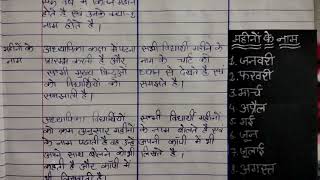 होते है एवं उनके क्या-2
नाम होते है।
महीनों के
नाम
अध्यापिका कक्षा में पढ़ाना
प्रारम्भ करती है और
सभी मुख्य बिन्दुओं
को विद्यार्थियों को
समझाती है।
सभी विद्यार्थी महीने के
नाम के चार्ट को
ध्यान से देखते है एवं
समझते है।
अध्यापिका विद्यार्थियों
को क्रम अनुसार महीनों
के नाम पढ़ाती है एवं उन्हें
अपने साथ बोलने को भी
कहती है और कॉपी में
भी
सभी विद्यार्थी महीनों
के नाम बोलते है एवं
अपनी कॉपी में भी
लिखते है।
महीनों के नाम
1. जनवरी
2. फरवरी
3. मार्च
4. अप्रैल
5. मई
6. जून
7. जुलाई
8. अगस्त